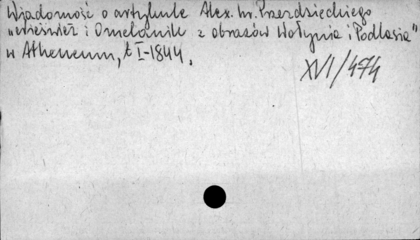 Wiadomość o artykule Alex. hr. Przezdzieckiego
„Nieśwież i Omelanik z obrazów Wołynia i Podlasia"
w Atheneum, t I-1844.
XVI/474